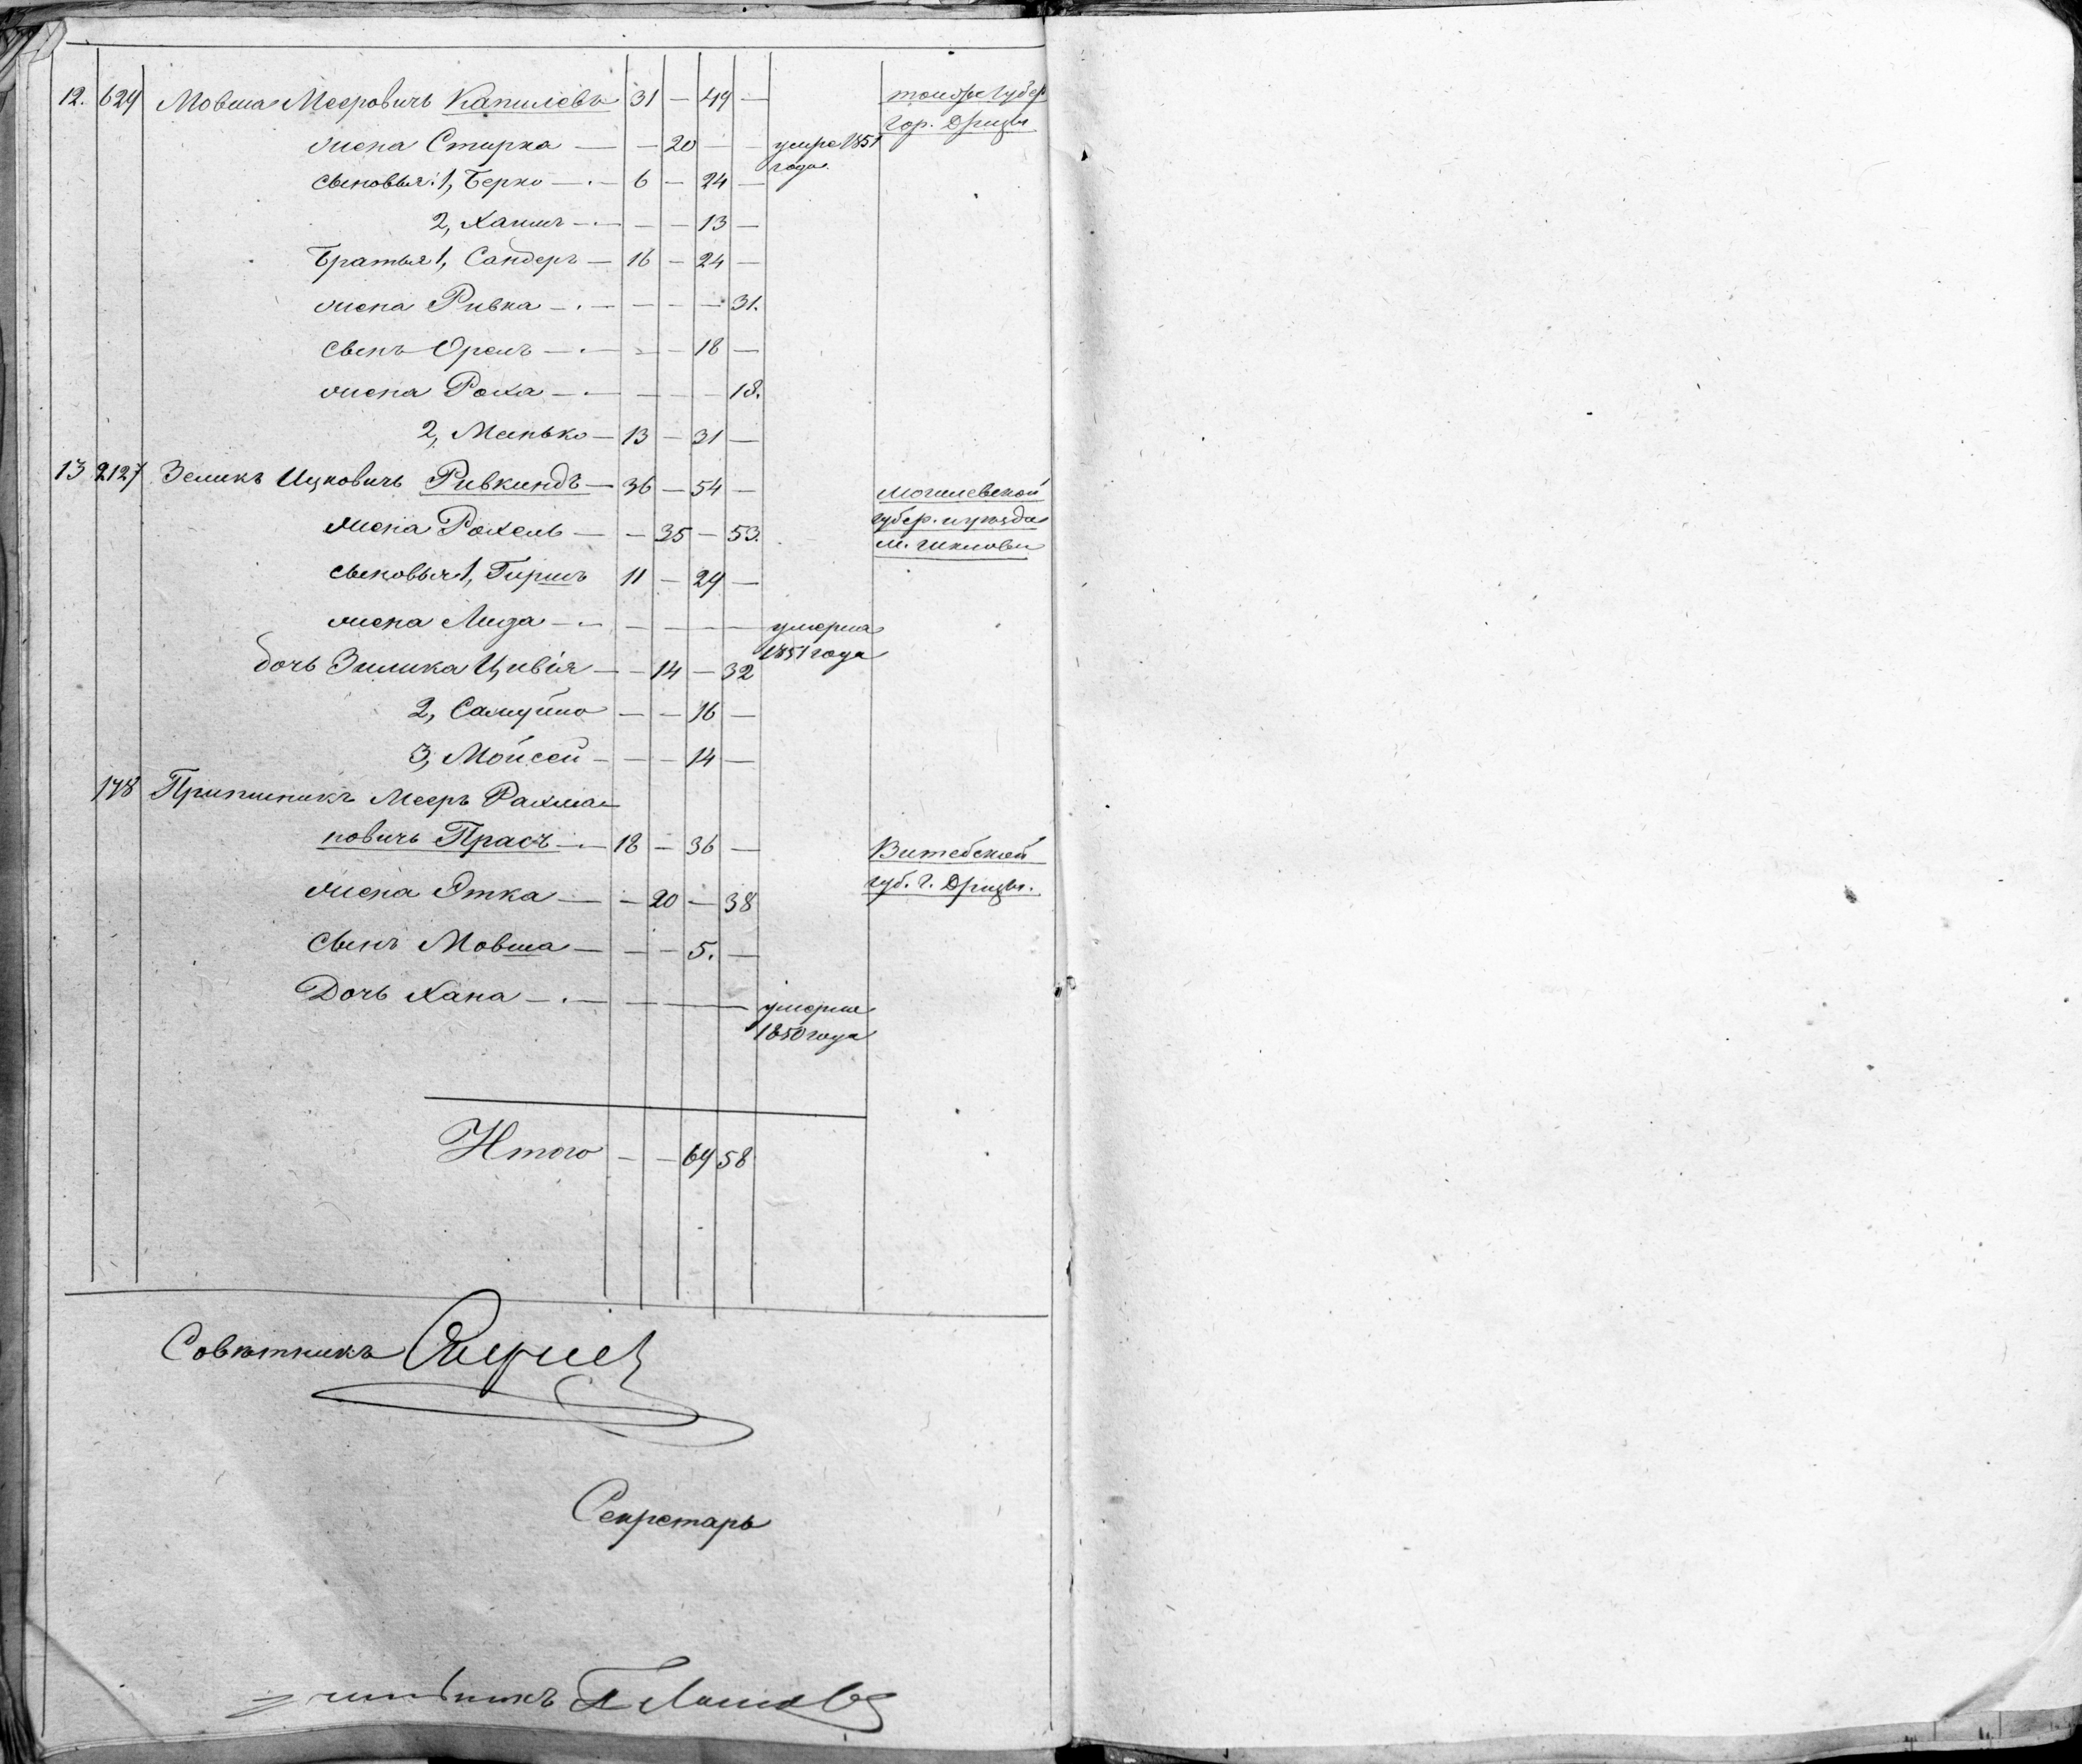 12. 624 Мовша Мееровичъ Капилевъ 31 — 49 — тойже Губер
Гор. Дризы
жена Стирка — — 20 — — умре 1851
года.
сыновья: 1, Берко — 6 — 24 —
2, Хаимъ — — — 13 —
Братья 1, Сандеръ — 16 — 24 —
жена Ривка — — — — 31.
сынъ Орелъ — — — 18 —
жена Роха — — — — 18.
2, Манько — 13 — 31 —
13 2127 Зеликъ Ицковичъ Ривкиндъ — 36 — 54 — Могилевской
губер. и уезда
м. Шклова
жена Рохель — — 35 — 53.
сыновья 1, Гиршъ 11 — 29 —
жена Лиза — — — — — умерла
1851 года
дочь Зилика Цивія — — 14 — 32
2, Самуйло — — 16 —
3, Мойсей — — — 14 —
178 Припишикъ Мееръ Рахма-
новичъ Прасъ — 18 — 36 — Витебской
губ. г. Дризы.
жена Этка — — 20 — 38
сынъ Мовша — — — 5. —
Дочь Хана — — — — умерла
1850 года
Итого — — 64 58
Совѣтникъ
Секретарь